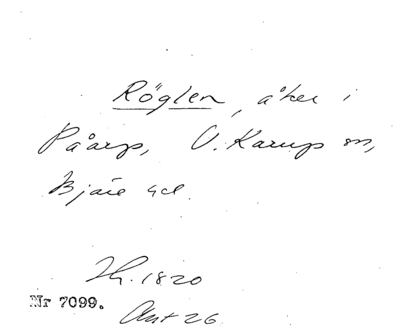 Röglen, åker i
Påarp, V. Karup sn,
Bjäre hd.
1820
Nr 7099.
Akt 26